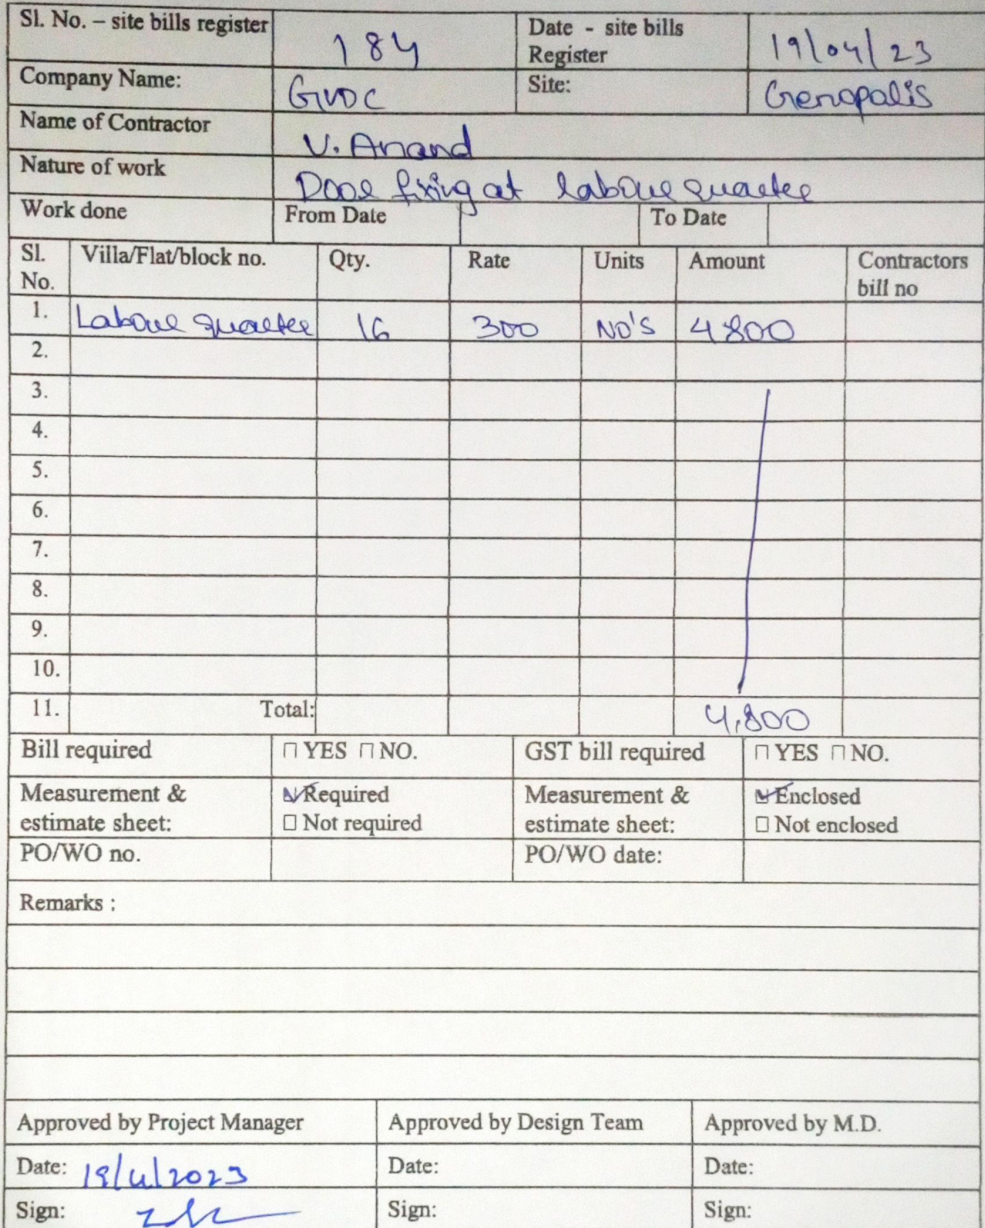 Sl. No. – site bills register 184 Date - site bills Register 19/04/23
Company Name: GVDC Site: Genopolis
Name of Contractor V. Anand
Nature of work Door fixing at labour quarter
Work done From Date To Date
Sl. No. Villa/Flat/block no. Qty. Rate Units Amount Contractors bill no
1. Labour quarter 16 300 NO'S 4800
2.
3.
4.
5.
6.
7.
8.
9.
10.
11. Total: 4,800
Bill required □ YES □ NO. GST bill required □ YES □ NO.
Measurement & estimate sheet: ☑ Required □ Not required Measurement & estimate sheet: ☑ Enclosed □ Not enclosed
PO/WO no. PO/WO date:
Remarks :
Approved by Project Manager Approved by Design Team Approved by M.D.
Date: 19/4/2023 Date: Date:
Sign: Sign: Sign: